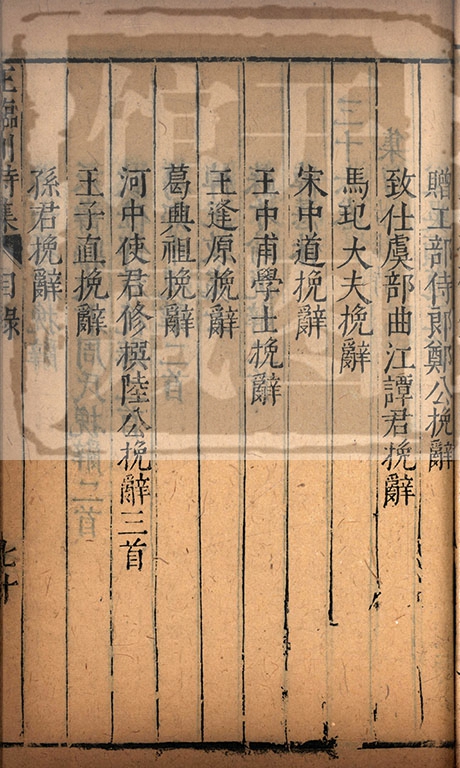 贈工部侍郎鄭公挽辭
致仕虞部曲江譚君挽辭
馬玘大夫挽辭
宋中道挽辭
王中甫學士挽辭
王逢原挽辭
葛興祖挽辭
河中使君修撰陸公挽辭三首
王子直挽辭
孫君挽辭
王臨川詩集 目錄 七十